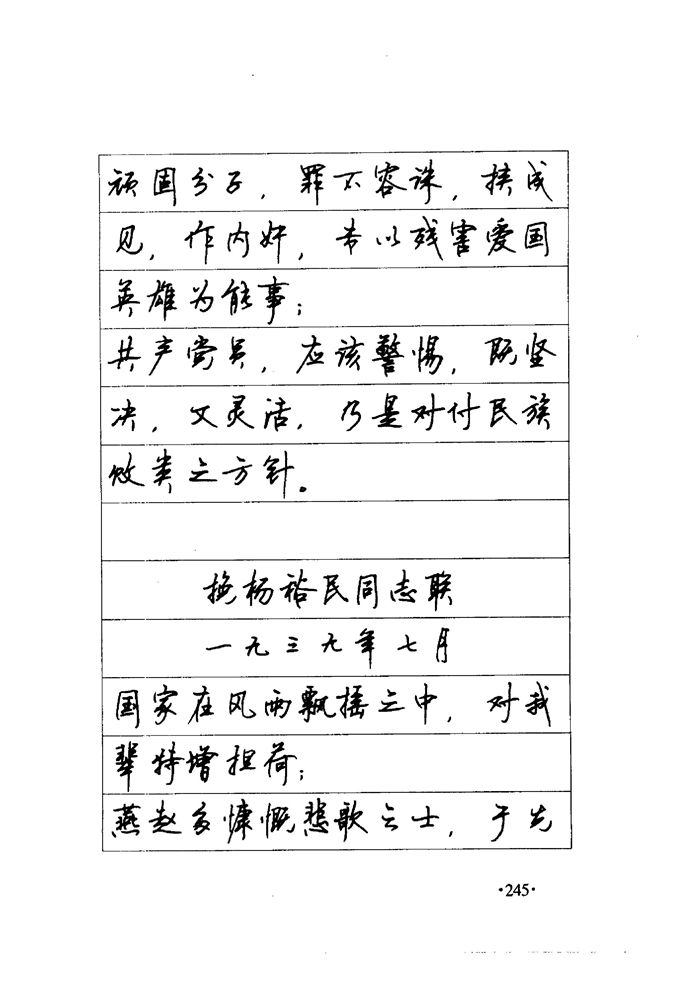 顽固分子，罪不容诛，挟成
见，作内奸，专以残害爱国
英雄为能事；
共产党员，应该警惕，既坚
决，又灵活，乃是对付民族
败类之方针。
挽杨裕民同志联
一九三九年七月
国家在风雨飘摇之中，对我
辈特增担荷；
燕赵多慷慨悲歌之士，于先
·245·